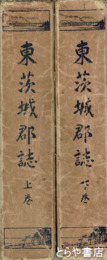 東茨城郡誌
上巻
東茨城郡誌
下巻
とらや書房